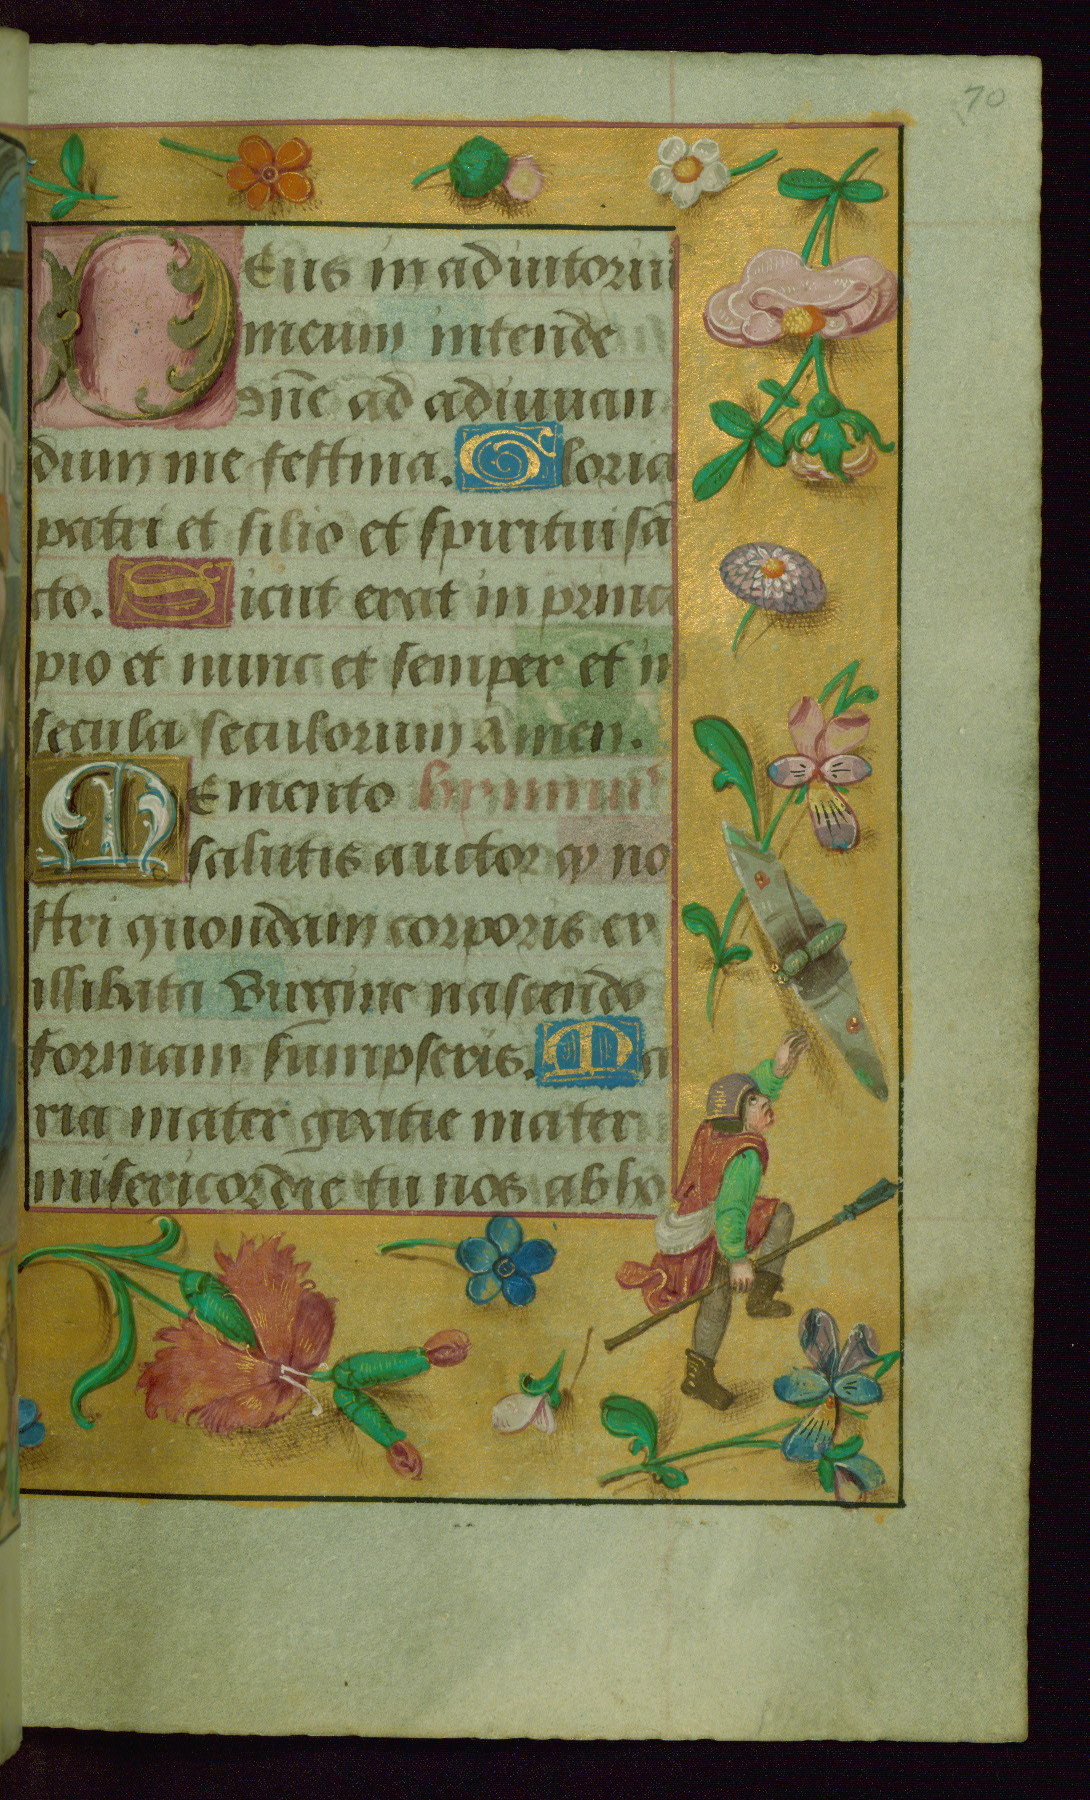 70
Deus in adiutoriū
meum intende
Dn̄e ad adiuuan
dum me festina. Gloria
patri et filio et spiritui sā
cto. Sicut erat in princi
pio et nunc et semper et in
secula seculorum Amen.
Memento
salutis auctor ꝙ no
stri quondam corporis ex
illibata Virgine nascendo
formam sumpseris. Ma
ria mater gratie mater
misericordie tu nos ab ho